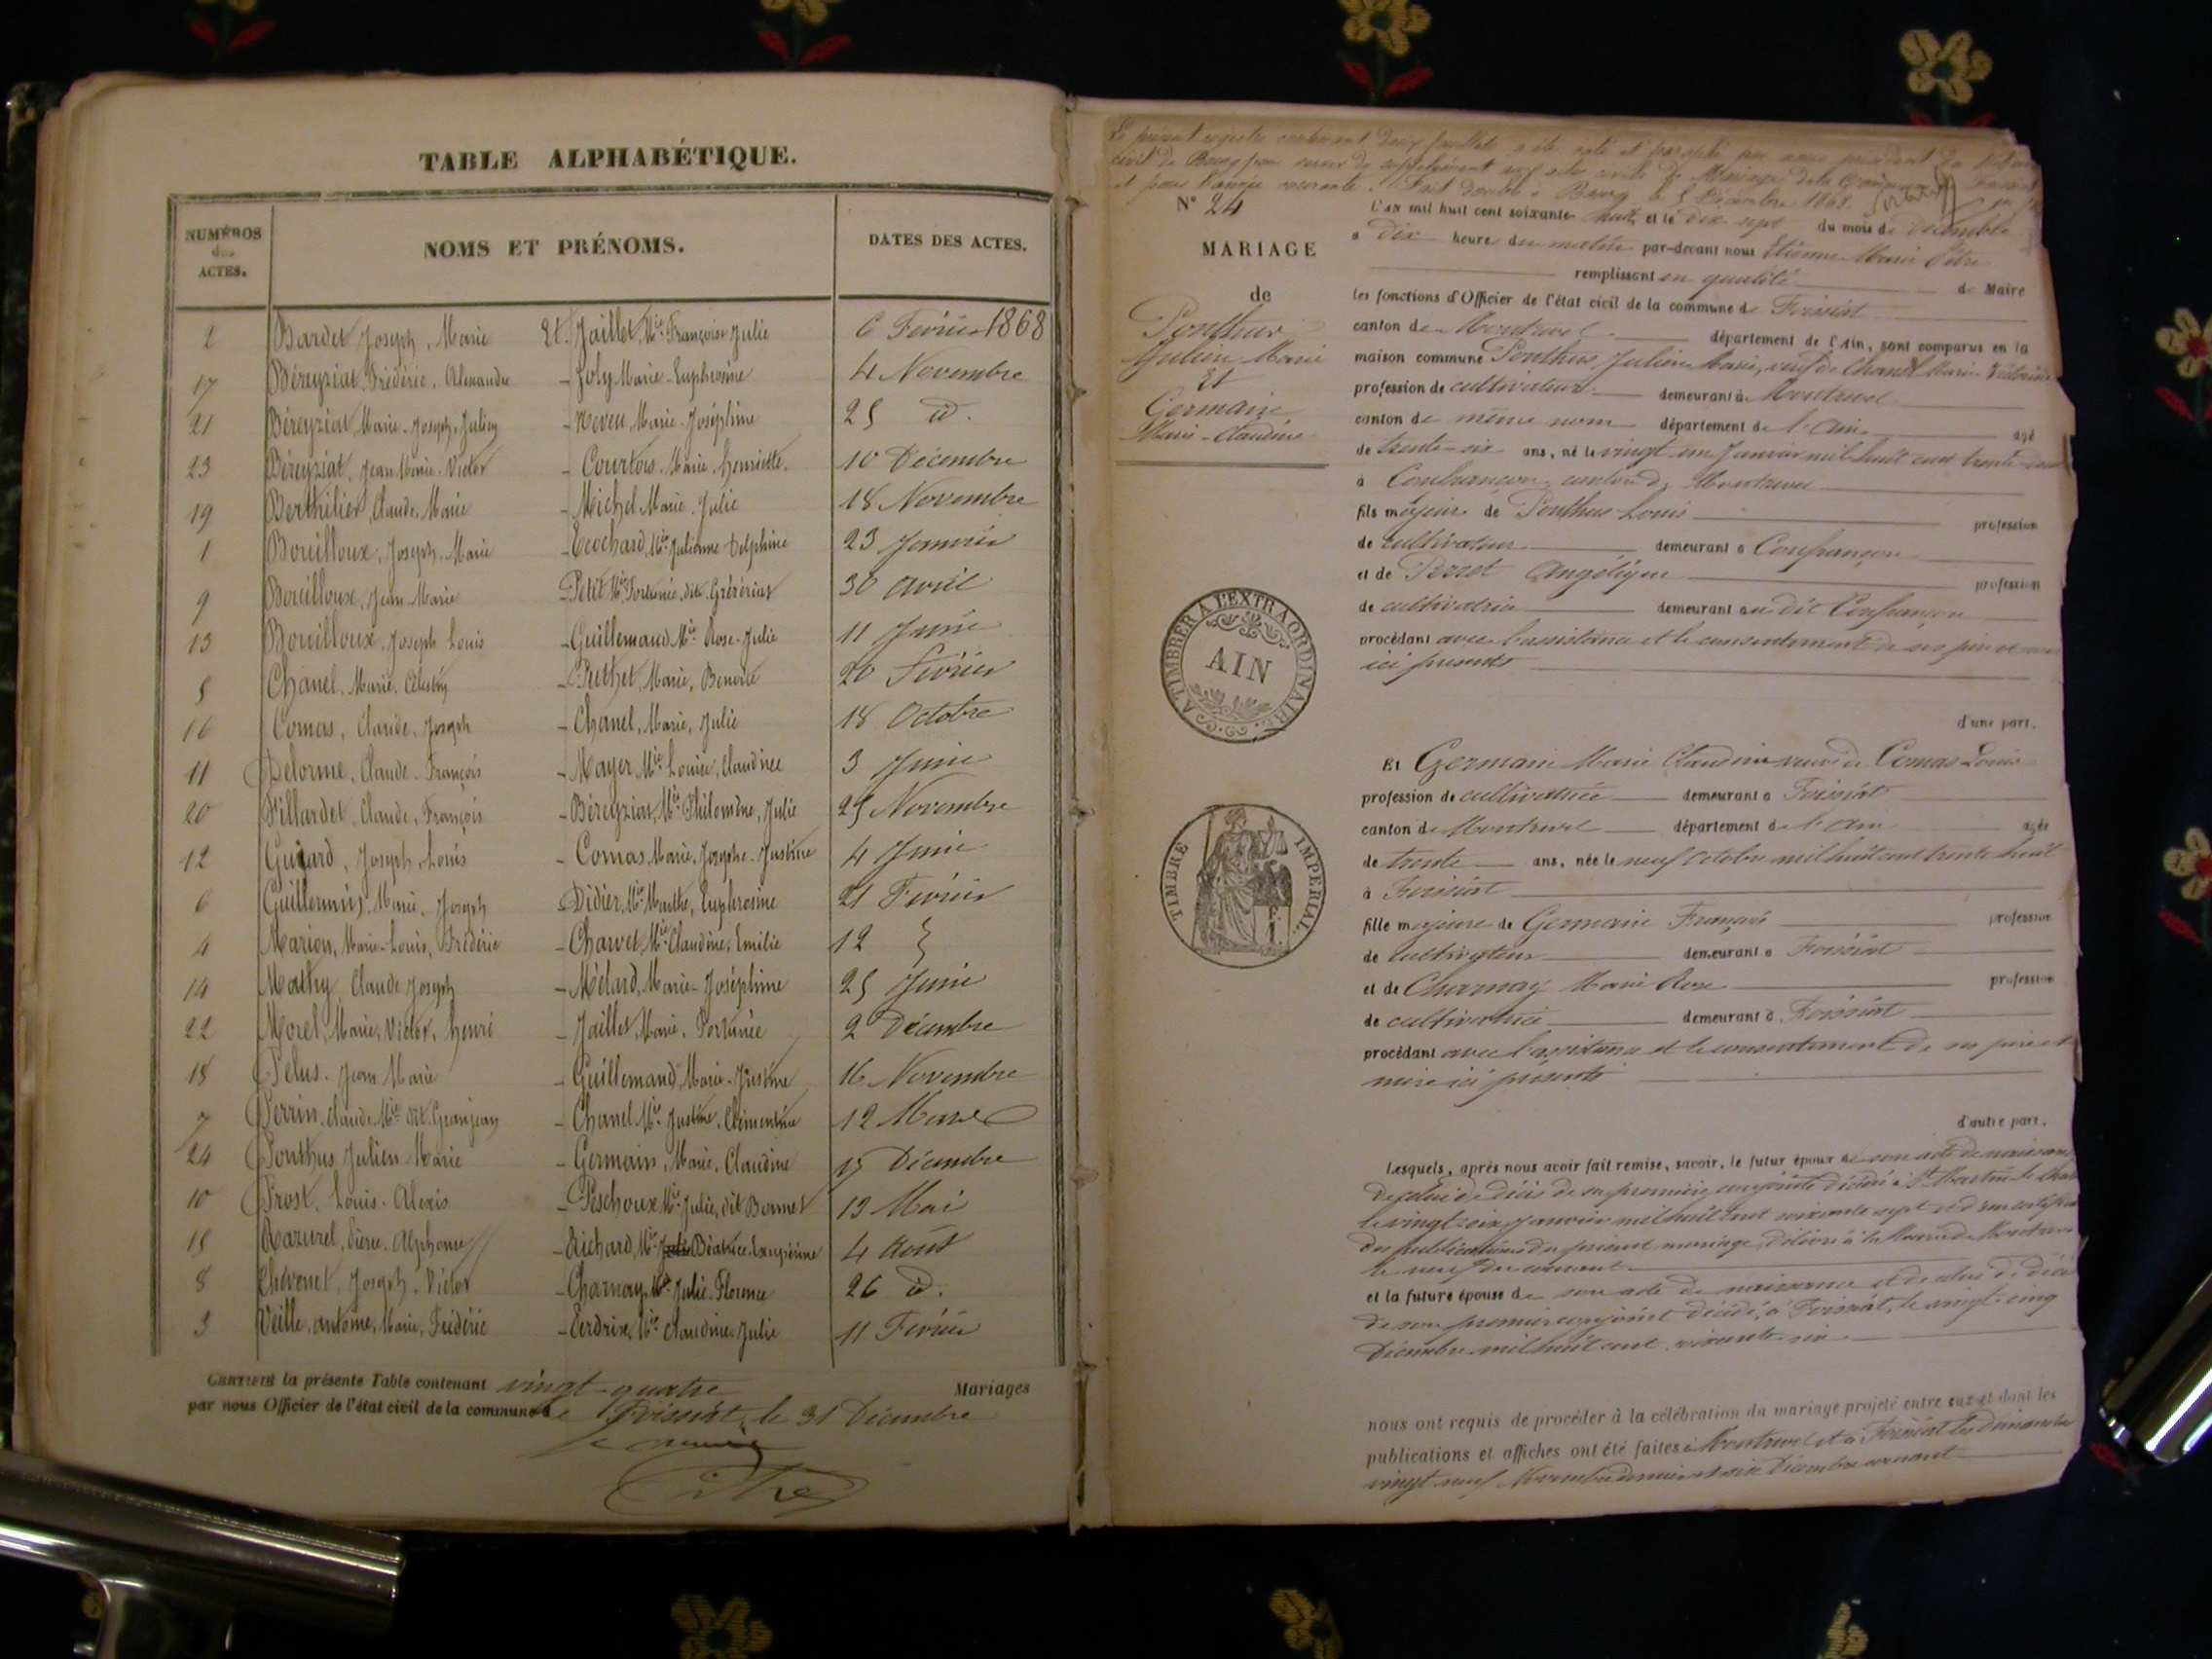 TABLE ALPHABÉTIQUE.
NUMÉROS des ACTES. NOMS ET PRÉNOMS. DATES DES ACTES.
2 Bardet Joseph, Marie Et. Jaillet Mie Françoise Julie 6 Février 1868
17 Béreyziat Frédéric, Alexandre - Joly Marie Euphrosine 4 Novembre
21 Béreyziat Marie-Joseph, Julien - Neveu Marie-Joséphine 25 id.
23 Béreyziat, Jean Marie-Victor - Courtois Marie henriette. 10 Décembre
19 Berthilier, Claude, Marie - Michel Marie-Julie 18 Novembre
1 Bouilloux, Joseph-Marie - Ecochard Mie Julienne Delphine 23 Janvier
9 Bouilloux, Jean-Marie - Petit Mie Fortunée, dit 30 avril
13 Bouilloux, Joseph Louis - Guillemaud Mie Rose-Julie 11 Juin
5 Chanel, Marie, - Puthet, Marie, Benoite 20 Février
16 Comas, Claude, Joseph - Chanel, Marie, Julie 18 Octobre
11 Delorme, Claude-François - Mayer Mie Louise, Claudine 3 Juin
20 Fillardet, Claude, François - Béreyziat, Mie Philomène, Julie 25 Novembre
12 Guigard, Joseph, Louis - Comas Marie, Josephe-Justine 4 Juin
6 Guillermin, Marie, Joseph - Didier, Mie Marthe, Euphrosine 21 Février
4 Marion, Marie-Louis, Frédéric - Charvet, Mie Claudine, Emilie 12
14 Mathy, Claude Joseph - Mélard, Marie-Joséphine 25 Juin
22 Morel, Marie, Victor, henri - Jaillet, Marie, Fortunée 2 Décembre
18 Pelus, Jean Marie - Guillemaud, Marie-Justine 16 Novembre
7 Perrin, Claude, Mie dit Granjean - Chanel Mie Justine, Clémentine 12 Mars
24 Ponthus, Julien-Marie - Germain, Marie, Claudine 17 Décembre
10 Prost, Louis-Alexis - Péchoux Mie Julie, dit Bonnet 13 Mai
15 Razurel, Pierre-Alphonse - Richard, Mie Julie Béatrice, 4 Août
8 Joseph, Victor - Charnay, Mie Julie-Florence 26 id.
3 Veille, antoine, Marie, Frédéric - Verdrix, Mie Claudine Julie 11 Février
CERTIFIÉ la présente Table contenant vingt-quatre Mariages
par nous Officier de l'état civil de la commune de Foissiat, le 31 Décembre
Le maire
Pitre
Le présent registre contenant deux feuillets a été coté et paraphé par nous président du tribunal
civil de Bourg pour servir de supplément aux actes civils de Mariages de la Commune de Foissiat
et pour l'année courante. Fait double à Bourg le 5 Décembre 1868.
N° 24
MARIAGE
de
Ponthus
Julien Marie
Et
Germain
Marie-Claudine
A TIMBRER A L'EXTRAORDINAIRE
AIN
TIMBRE IMPERIAL
L'an mil huit cent soixante-huit, et le dix sept du mois de Décembre
à Dix heure du matin par-devant nous Etienne Marie Pitre
remplissant en qualité de Maire
les fonctions d'Officier de l'état civil de la commune de Foissiat
canton de Montrevel département de l'Ain, sont comparus en la
maison commune Ponthus Julien Marie, veuf de Chanel Marie Victorine
profession de cultivateur demeurant à Montrevel
canton de même nom département de l'Ain agé
de trente-six ans, né le vingt un Janvier mil huit cent trente deux
à Confrançon, canton de Montrevel
fils majeur de Ponthus Louis profession
de cultivateur demeurant à Confrançon
et de Perret Angélique profession
de cultivatrice demeurant au dit Confrançon
procédant avec l'assistance et le consentement de ses père et mère
ici présents
d'une part.
Et Germain Marie Claudine veuve de Comas Louis
profession de cultivatrice demeurant à Foissiat
canton de Montrevel département de l'Ain agée
de trente ans, née le neuf octobre mil huit cent trente huit
à Foissiat
fille majeure de Germain François profession
de cultivateur demeurant à Foissiat
et de Charnay Marie Rose profession
de cultivatrice demeurant à Foissiat
procédant avec l'assistance et le consentement de ses père et
mère ici présents
d'autre part.
Lesquels, après nous avoir fait remise, savoir, le futur époux de son acte de naissance
de celui de décès de sa première conjointe décédée à St Martin-le-Chatel
le vingt six Janvier mil huit cent soixante sept et d'un certificat
des publications du présent mariage, délivré à la Mairie de Montrevel
le neuf du courant
et la future épouse de son acte de naissance et de celui de décès
de son premier conjoint décédé, à Foissiat, le vingt-cinq
Décembre mil huit cent soixante six
nous ont requis de procéder à la célébration du mariage projeté entre eux et dont les
publications et affiches ont été faites à Montrevel et à Foissiat les dimanches
vingt neuf Novembre dernier et six Décembre courant